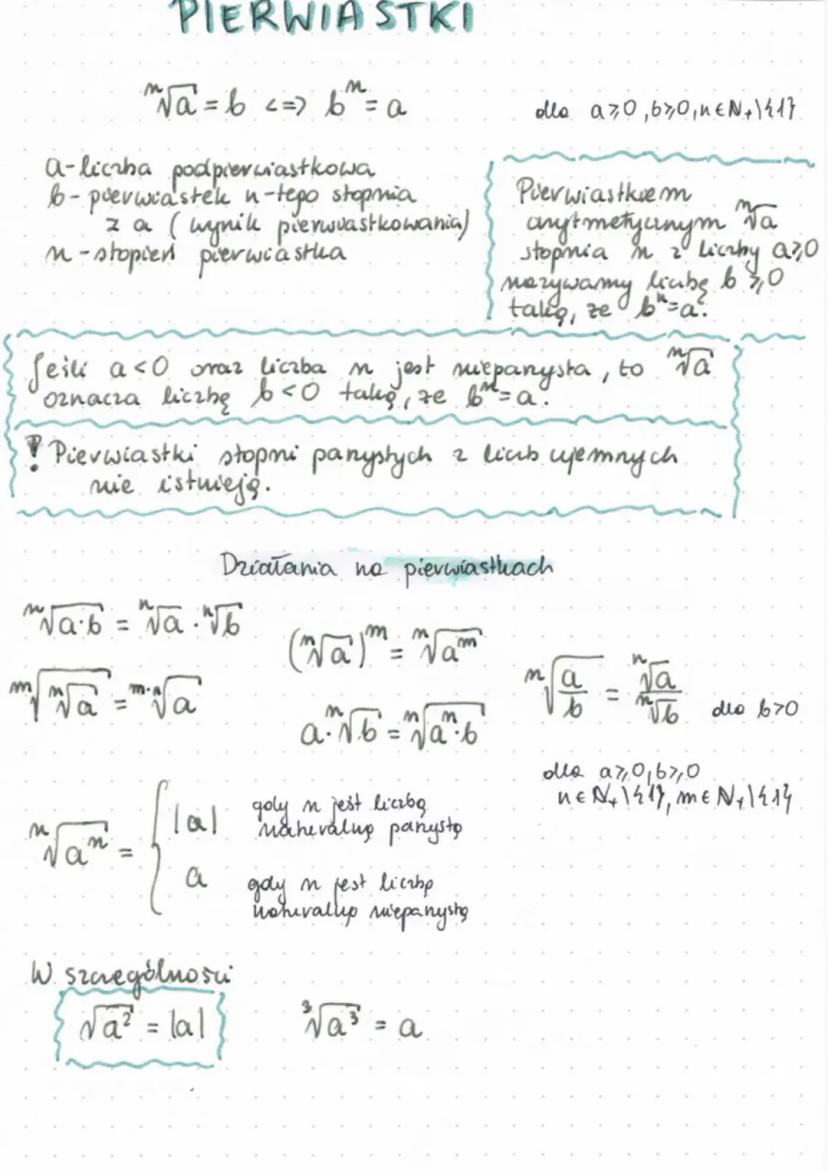 PIERWIASTKI
ⁿ√a = b <=> bⁿ = a
dla a≥0, b≥0, n∈N₊\{1}
a - liczba podpierwiastkowa
b - pierwiastek n-tego stopnia
z a (wynik pierwiastkowania)
n - stopień pierwiastka
Pierwiastkiem
arytmetycznym ⁿ√a
stopnia n z liczby a≥0
nazywamy liczbę b≥0
taką, że bⁿ=a.
Jeśli a<0 oraz liczba n jest nieparzysta, to ⁿ√a
oznacza liczbę b<0 taką, że bⁿ=a.
! Pierwiastki stopni parzystych z liczb ujemnych
nie istnieją.
Działania na pierwiastkach
ⁿ√(a·b) = ⁿ√a · ⁿ√b
(ⁿ√a)ᵐ = ⁿ√(aᵐ)
ⁿ√(a/b) = ⁿ√a / ⁿ√b dla b>0
ᵐ√(ⁿ√a) = ᵐ·ⁿ√a
a·ⁿ√b = ⁿ√(aⁿ·b)
dla a≥0, b≥0
n∈N₊\{1}, m∈N₊\{1}
ⁿ√(aⁿ) = {
|a| gdy n jest liczbą
naturalną parzystą
a gdy n jest liczbą
naturalną nieparzystą
W szczególności
√(a²) = |a|
³√(a³) = a